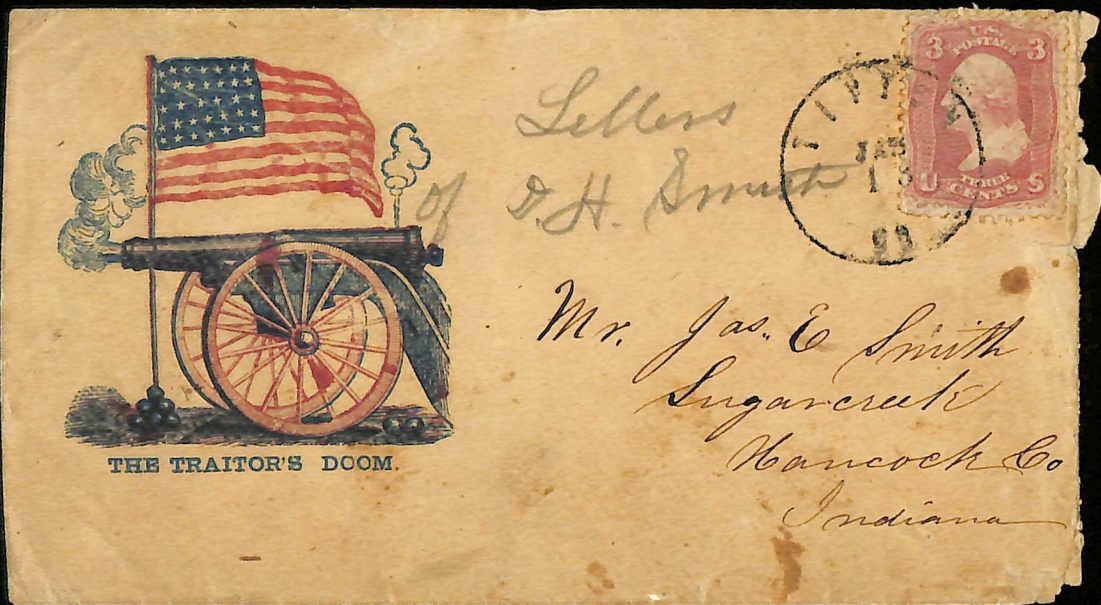 Letters
of D. H. Smith
3 U.S. 3
POSTAGE
U THREE S
CENTS
JAN
Mr. Jas. E Smith
Sugarcreek
Hancock Co
Indiana
THE TRAITOR'S DOOM.